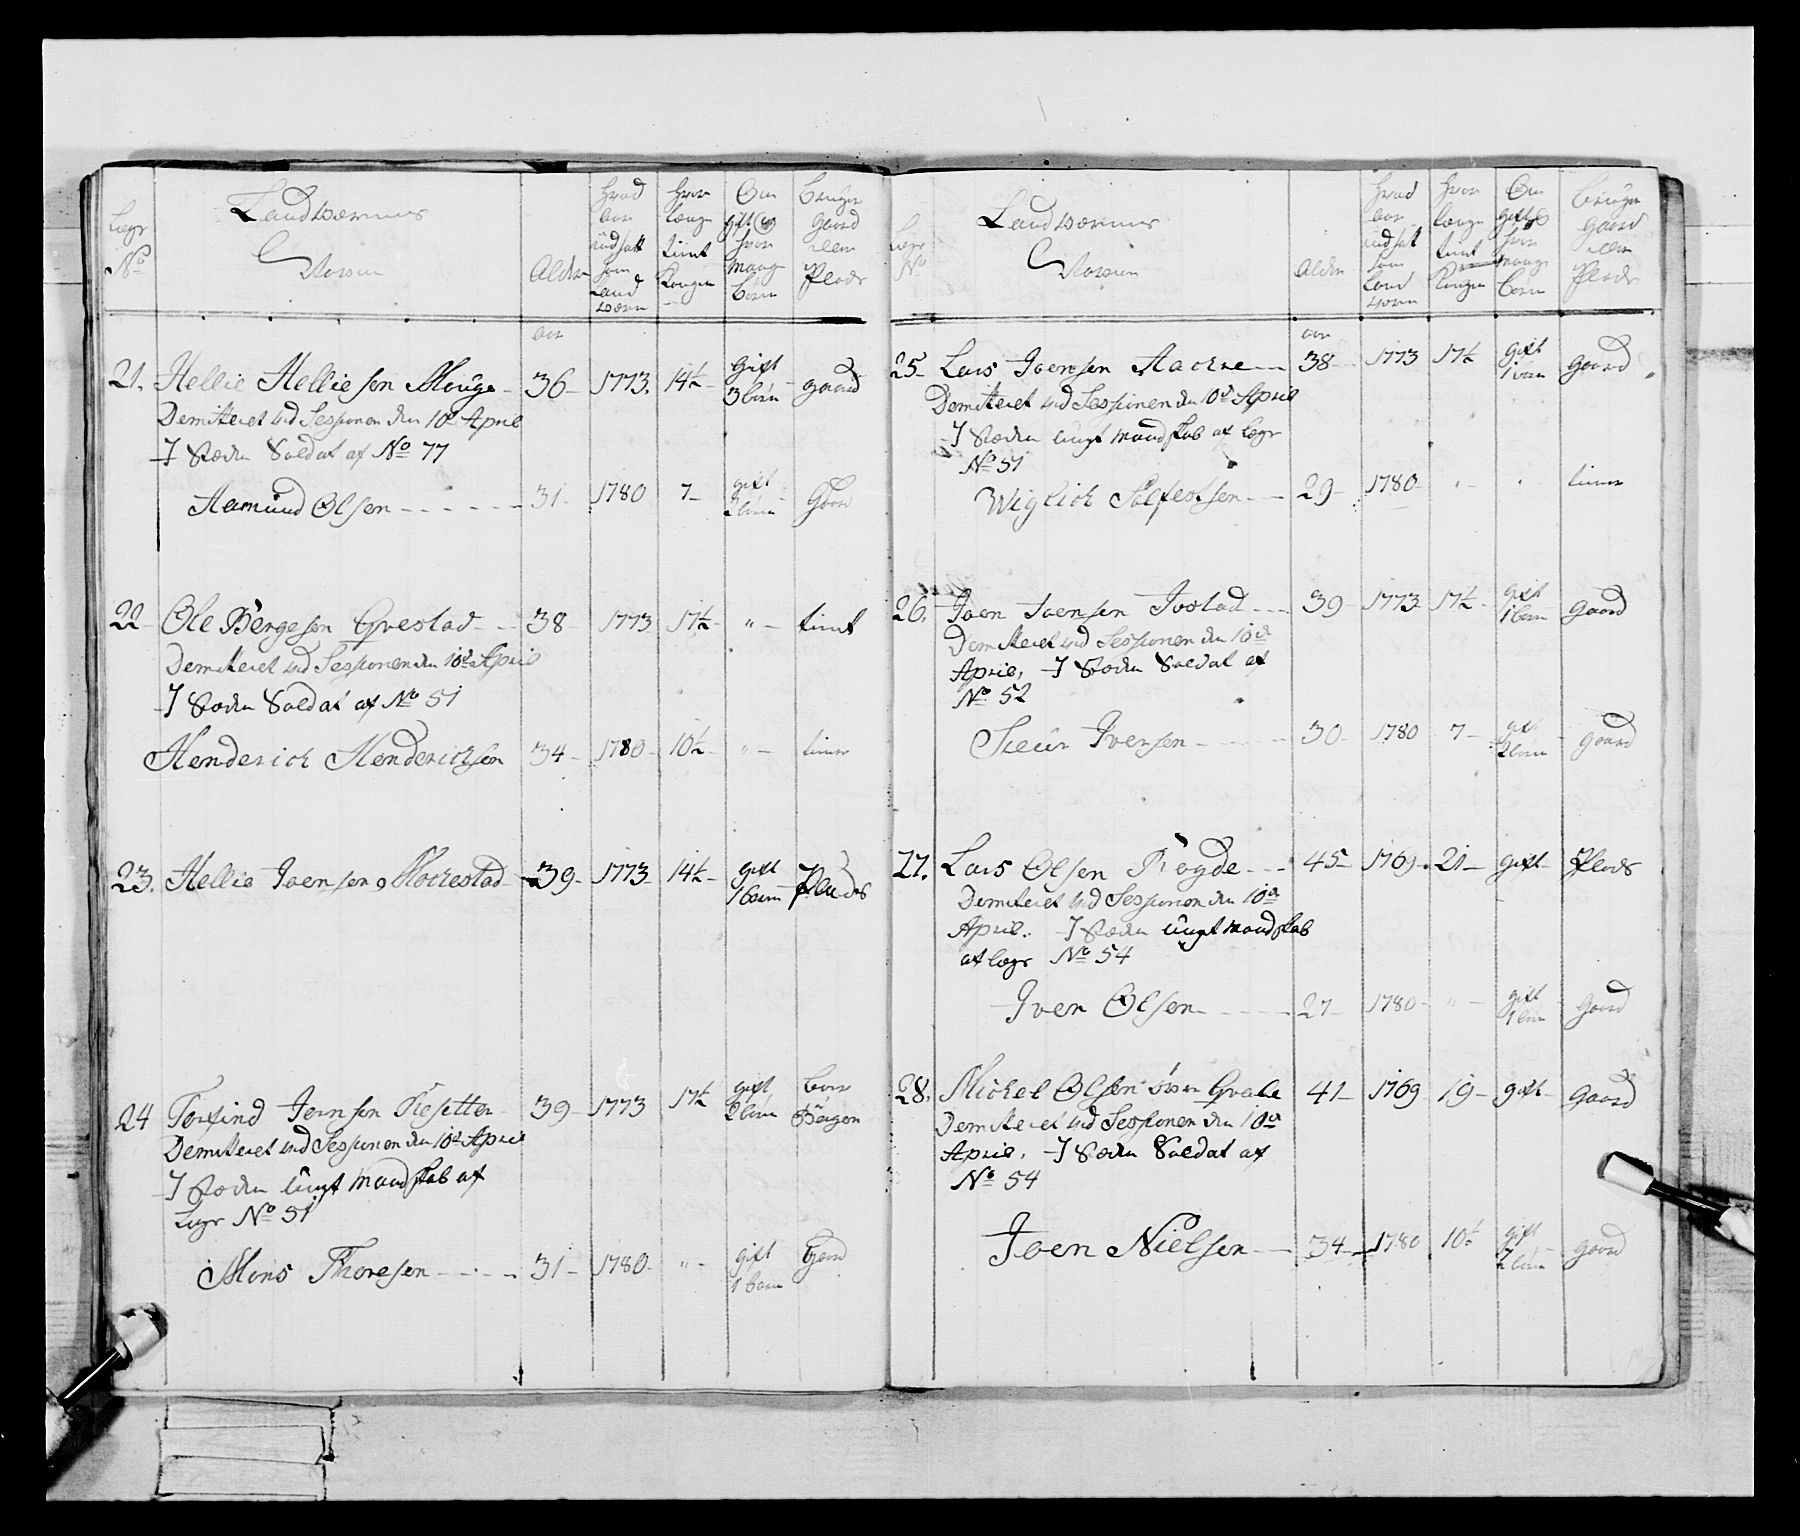 Lægr
No
Landværnes
Navne
Alder
Hvad
aar
udsatt
som
Land
værn
Hvor
længe
tiint
Kongen
Om
gift og
hvor
mange
børn
Bruger
Gaard
eller
Plads
aar
21. Hellie Helliesen Mouge - 36 - 1773. 14½ - gift 3 børn gaard
Demitteret ved Sessionen den 10d April
I Stæden Soldat af No 77
Aamund Olsen - - - - - - 31 - 1780 7 - gift 2 børn Gaard
22 Ole Børgesen Qvestad - - 38 - 1773 17½ - " - tiint
Demitteret ved Sessionen den 10de April
I Stæden Soldat af No 51
Henderich Henderichsen 34 - 1780 - 10½ - " - tiener
23. Hellie Ivensen Mochestad - 39 - 1773 - 14½ - gift 1 barn Plads
24 Torfind Jernsen Risetter - 39 - 1773 17½ gift 2 børn boer Bergen
Demitteret ved Sessionen den 10de April
I Stæden ungt Mandskab af
Lægr No 51
Mons Thoresen - - - - 31 - 1780 - " - gift 1 barn Gaard
Lægr
No
Landværnes
Navne
Alder
Hvad
aar
udsatt
som
Land
værn
Hvor
længe
tiint
Kongen
Om
gift og
hvor
mange
børn
Bruger
Gaard
eller
Plads
aar
25 - Lars Ivensen Aachre - - 38 - 1773 17½ gift 1 barn gaard
Demitteret ved Sessionen den 10d April
I Stæden ungt Mandskab af Lægr
No 51
Wiglich Solfestsen - - 29 - 1780 - " - " tiener
26. Iven Ivensen Tvostad - - - 39 - 1773 - 17½ - gift 1 barn gaard
Demitteret ved Sessionen den 10de
April, I Stæden Soldat af
No 52
Siur Iversen - - - - - 30 - 1780 7 - gift 2 børn gaard
27. Lars Olsen Rögde - - - 45 - 1769 - 21 - gift - Plads
Demitteret ved Sessionen den 10de
April. I Stæden ungt Mandskab
af Lægr No 54
Iver Olsen - - - - - 27 - 1780 - " - gift 1 barn gaard
28. Michel Olsen övre Qvale 41 - 1769 19 - gift - gaard
Demitteret ved Sessionen den 10de
April, I Stæden Soldat af
No 54
Iven Nielsen - - 34 - 1780 10½ gift 2 børn gaard